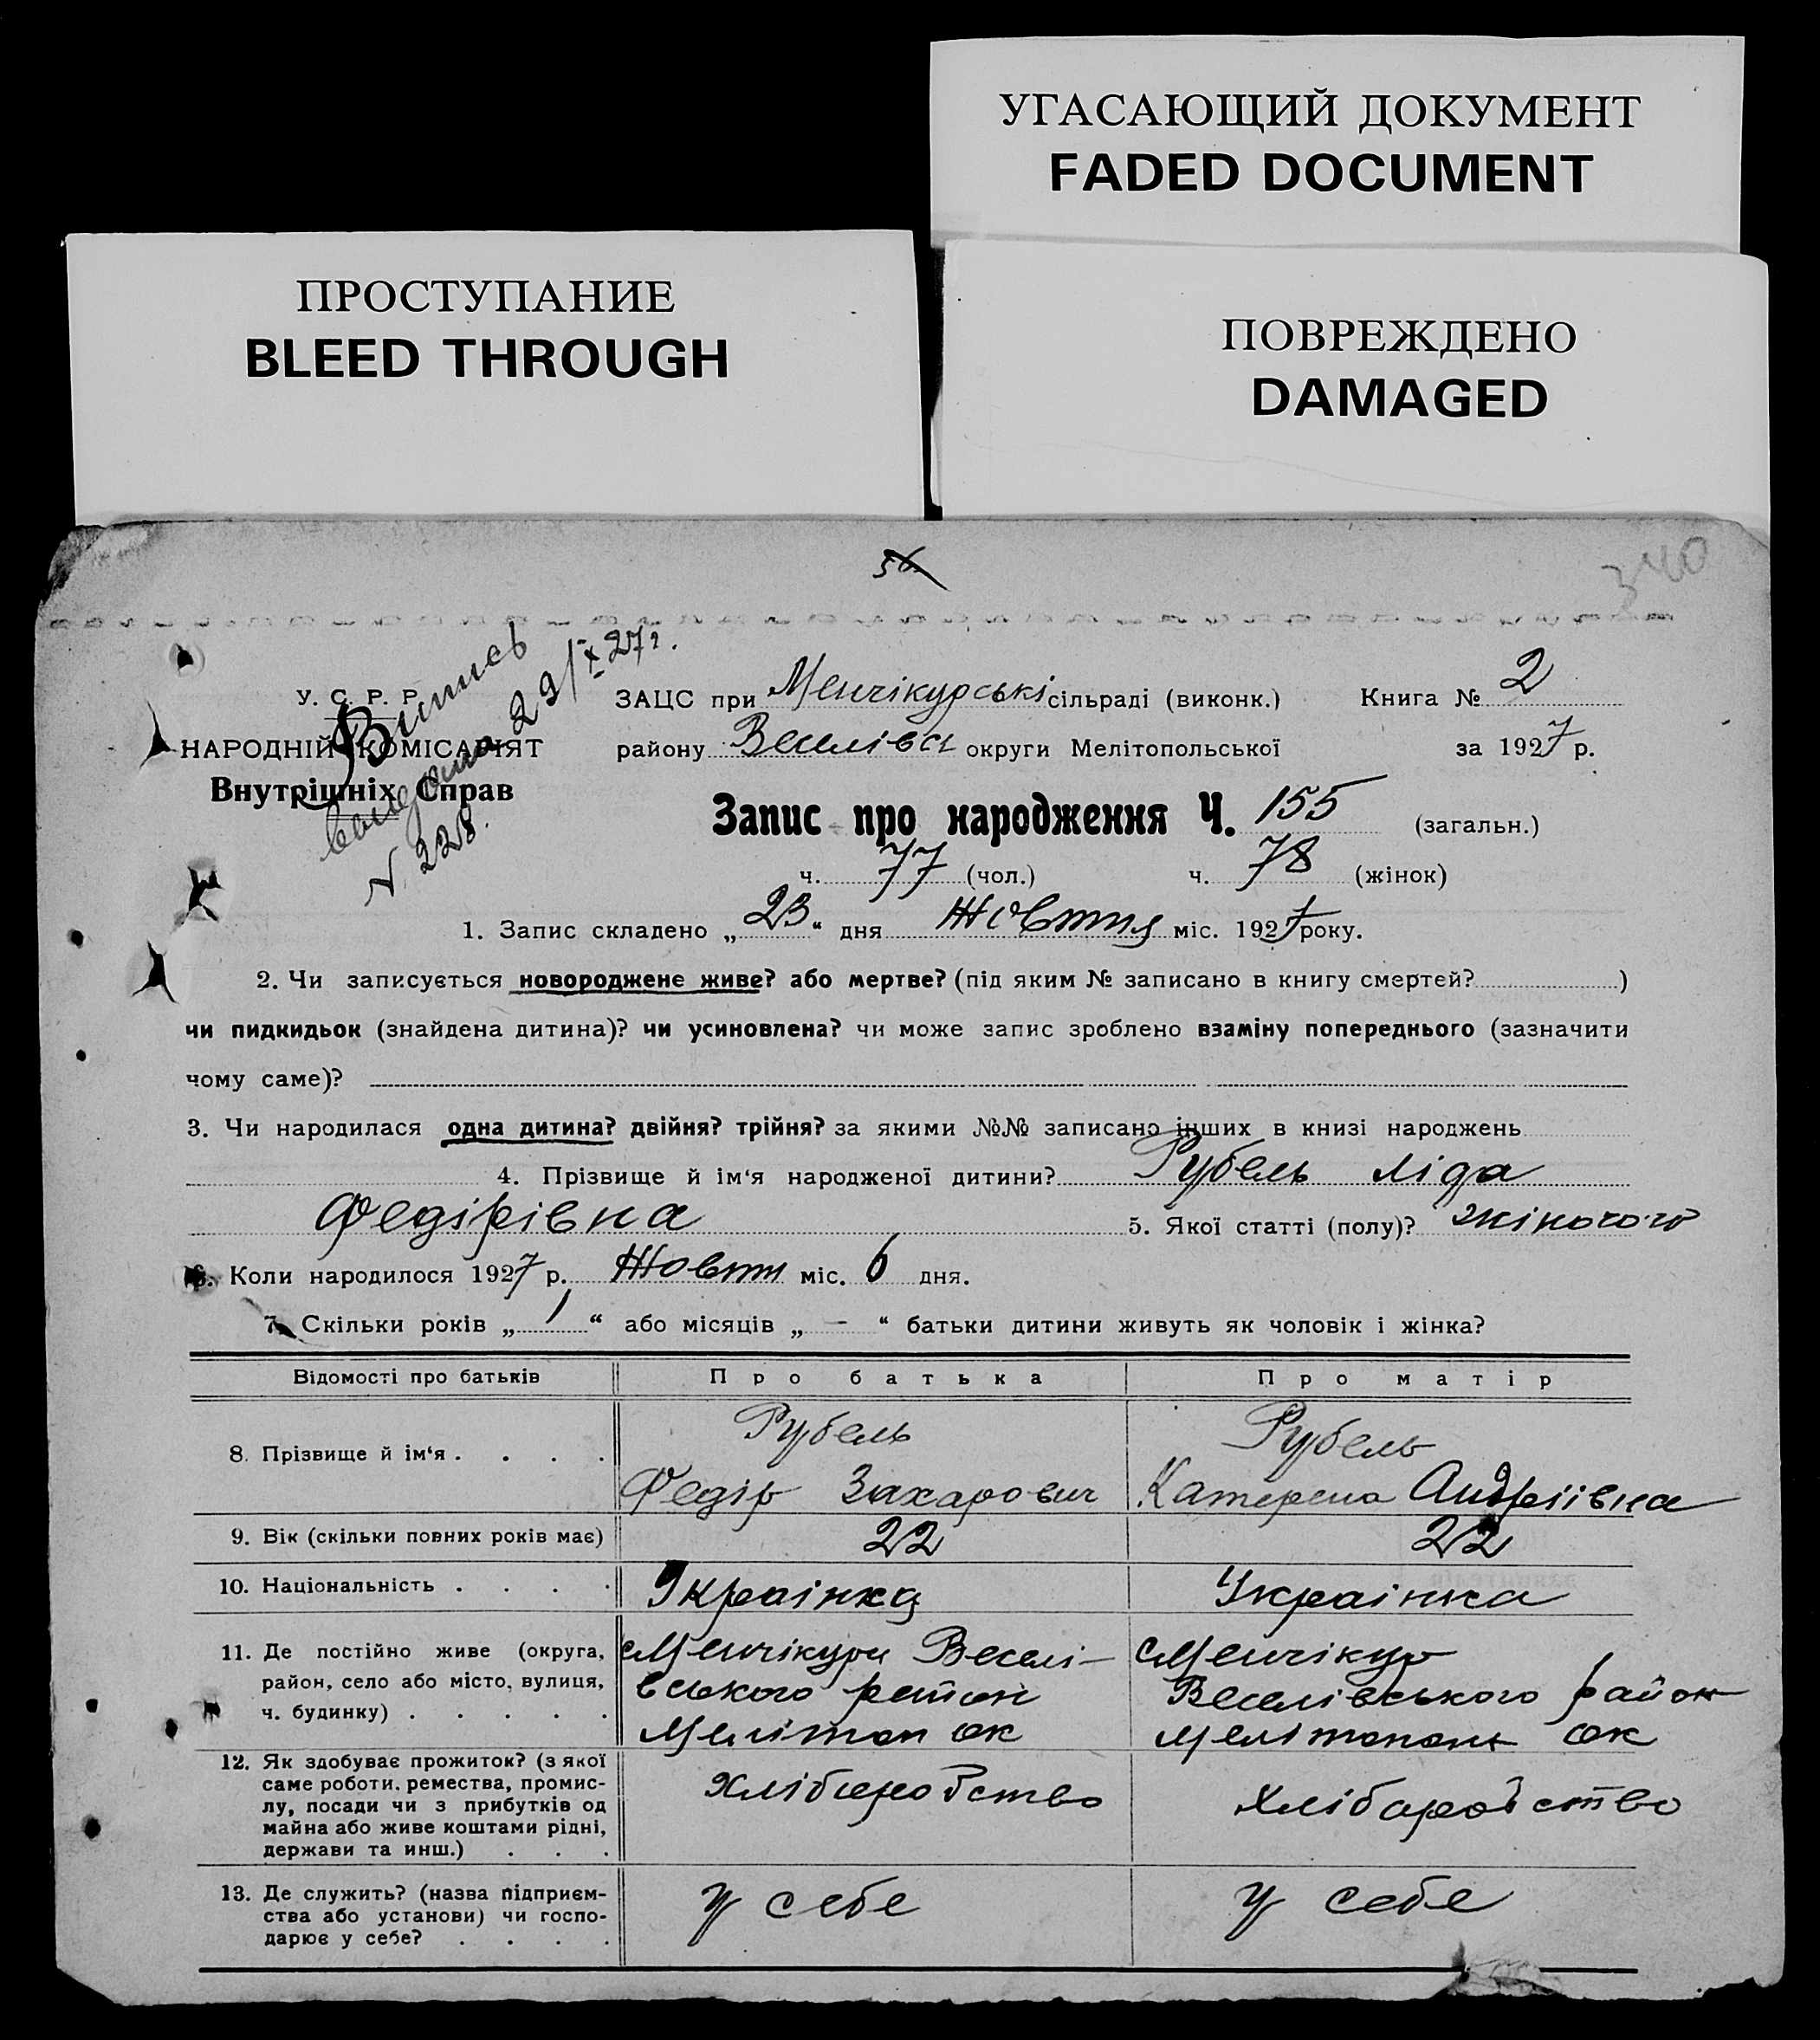 УГАСАЮЩИЙ ДОКУМЕНТ
FADED DOCUMENT
ПРОСТУПАНИЕ
BLEED THROUGH
ПОВРЕЖДЕНО
DAMAGED
56
340
У. С. Р. Р.
НАРОДНІЙ КОМІСАРІЯТ
Внутрішніх Справ
Витяг
29/X 27 г.
N. 228.
ЗАЦС при Менчікурські сільраді (виконк.) Книга № 2
району Веселівсь округи Мелітопольської за 1927 р.
Запис про народження Ч. 155 (загальн.)
ч. 77 (чол.) ч. 78 (жінок)
1. Запис складено „ 23 “ дня Жовтня міс. 1927 року.
2. Чи записується новороджене живе? або мертве? (під яким № записано в книгу смертей? )
чи пидкидьок (знайдена дитина)? чи усиновлена? чи може запис зроблено взаміну попереднього (зазначити
чому саме)?
3. Чи народилася одна дитина? двійня? трійня? за якими №№ записано інших в книзі народжень
4. Прізвище й ім‘я народженої дитини? Рубель Ліда
Федірівна 5. Якої статті (полу)? жіночого
6. Коли народилося 1927 р. Жовтн міс. 6 дня.
7. Скільки років „ 1 “ або місяців „ - “ батьки дитини живуть як чоловік і жінка?
Відомості про батьків Про батька Про матір
8. Прізвище й ім‘я . . . . Рубель Рубель
Федір Захарович Катерена Андріівна
9. Вік (скільки повних років має) 22 22
10. Національність . . . . Украінка Украінка
11. Де постійно живе (округа, Менчікури Веселі- Менчікур
район, село або місто, вулиця, вського район Веселівського район
ч. будинку) . . . . . Мелітоп ок Мелітопонь ок
12. Як здобуває прожиток? (з якої
саме роботи, ремества, промис- Хлібаробство Хлібаробство
лу, посади чи з прибутків од
майна або живе коштами рідні,
держави та инш.) . . .
13. Де служить? (назва підприєм- у себе у себе
ства або установи) чи госпо-
дарює у себе? . . . .